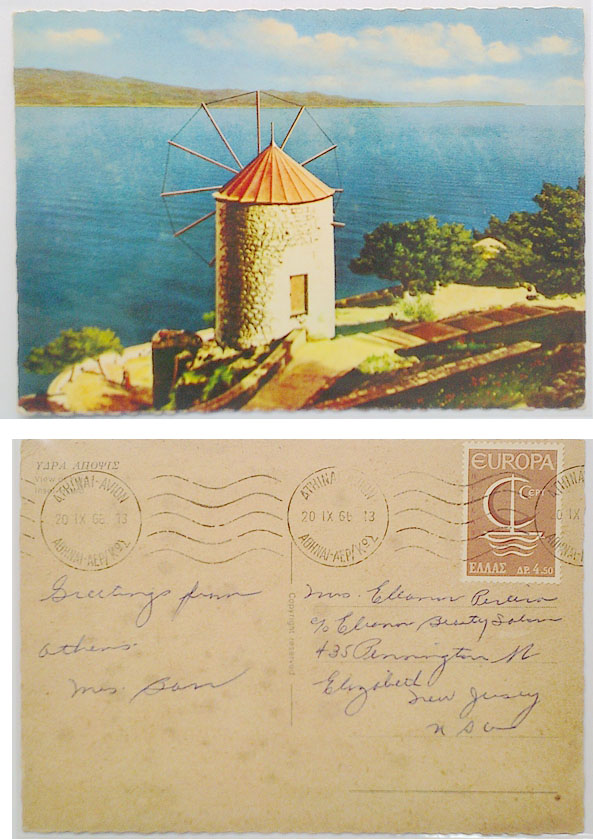 ΥΔΡΑ ΑΠΟΨΙΣ
View
ΑΘΗΝΑΙ-ΑΥΙΟΝ
20 IX 66. 13
ΑΘΗΝΑΙ-ΑΕΡ/ΚΩΣ
ΑΘΗΝΑ ΥΙΟΝ
20 IX 66 13
ΑΘΗΝΑΙ-ΑΕΡ/ΚΩΣ
EUROPA
CEPT
ΕΛΛΑΣ ΔΡ. 4.50
20 IX
Greetings from
Athens.
Mrs.
Copyright reserved
Mrs. Eleanor Pereira
c/o Eleanor Beauty Salon
435 Pennington St
Elizabeth
New Jersey
U S A